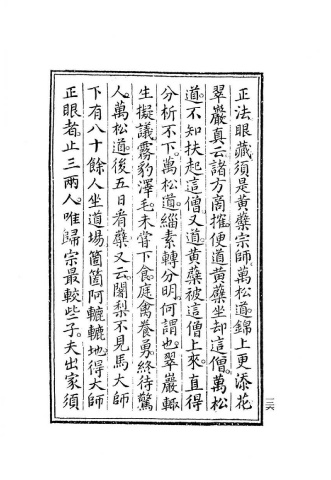 正法眼藏須是黃蘗宗師萬松道。錦上更添花
翠巖真云諸方商搉便道黃蘗坐却這僧。萬松
道。不知扶起這僧又道。黃蘗被這僧上來。直得
分析不下。萬松道。緇素轉分明。何謂也。翠巖輙
生擬議。霧豹澤毛未甞下食。庭禽養勇。終待驚
人。萬松道。後五日看。蘗又云。闍梨不見馬大師
下有八十餘人坐道場箇箇阿轆轆地。得大師
正眼者。止三兩人。唯歸宗最較些子。夫出家須
一三六